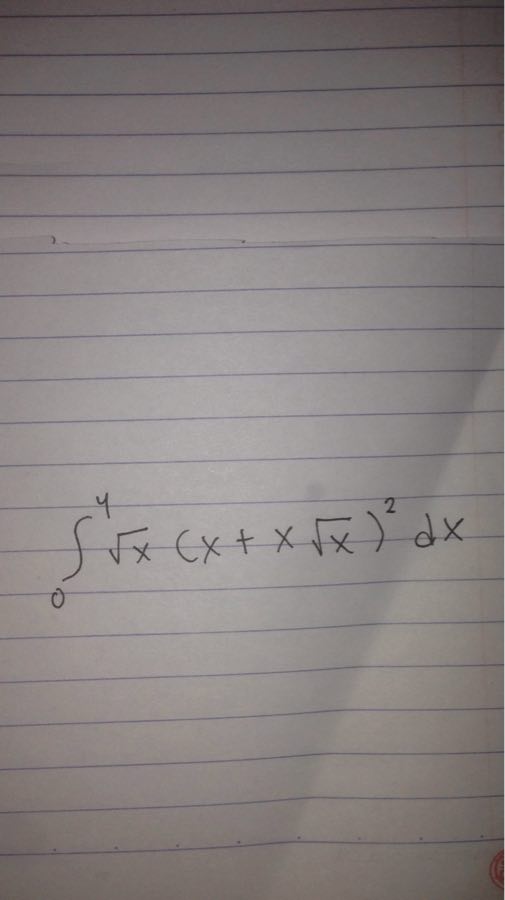 ∫₀⁴ √x (x + x √x)² dx